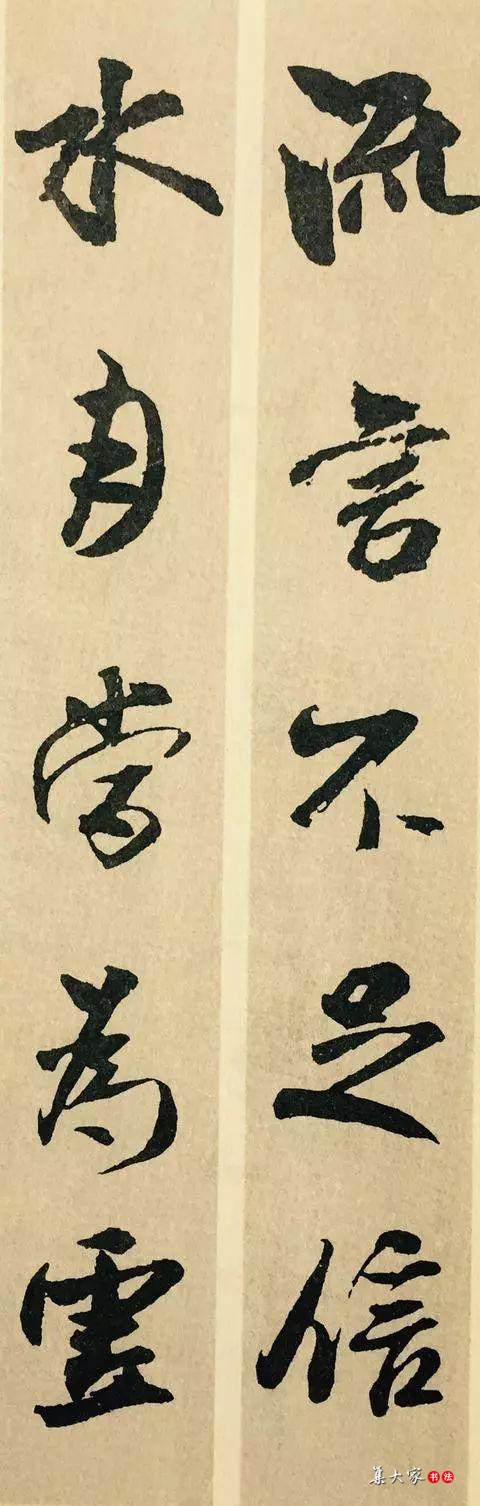 流言不足信
水自當為靈
集大家书法